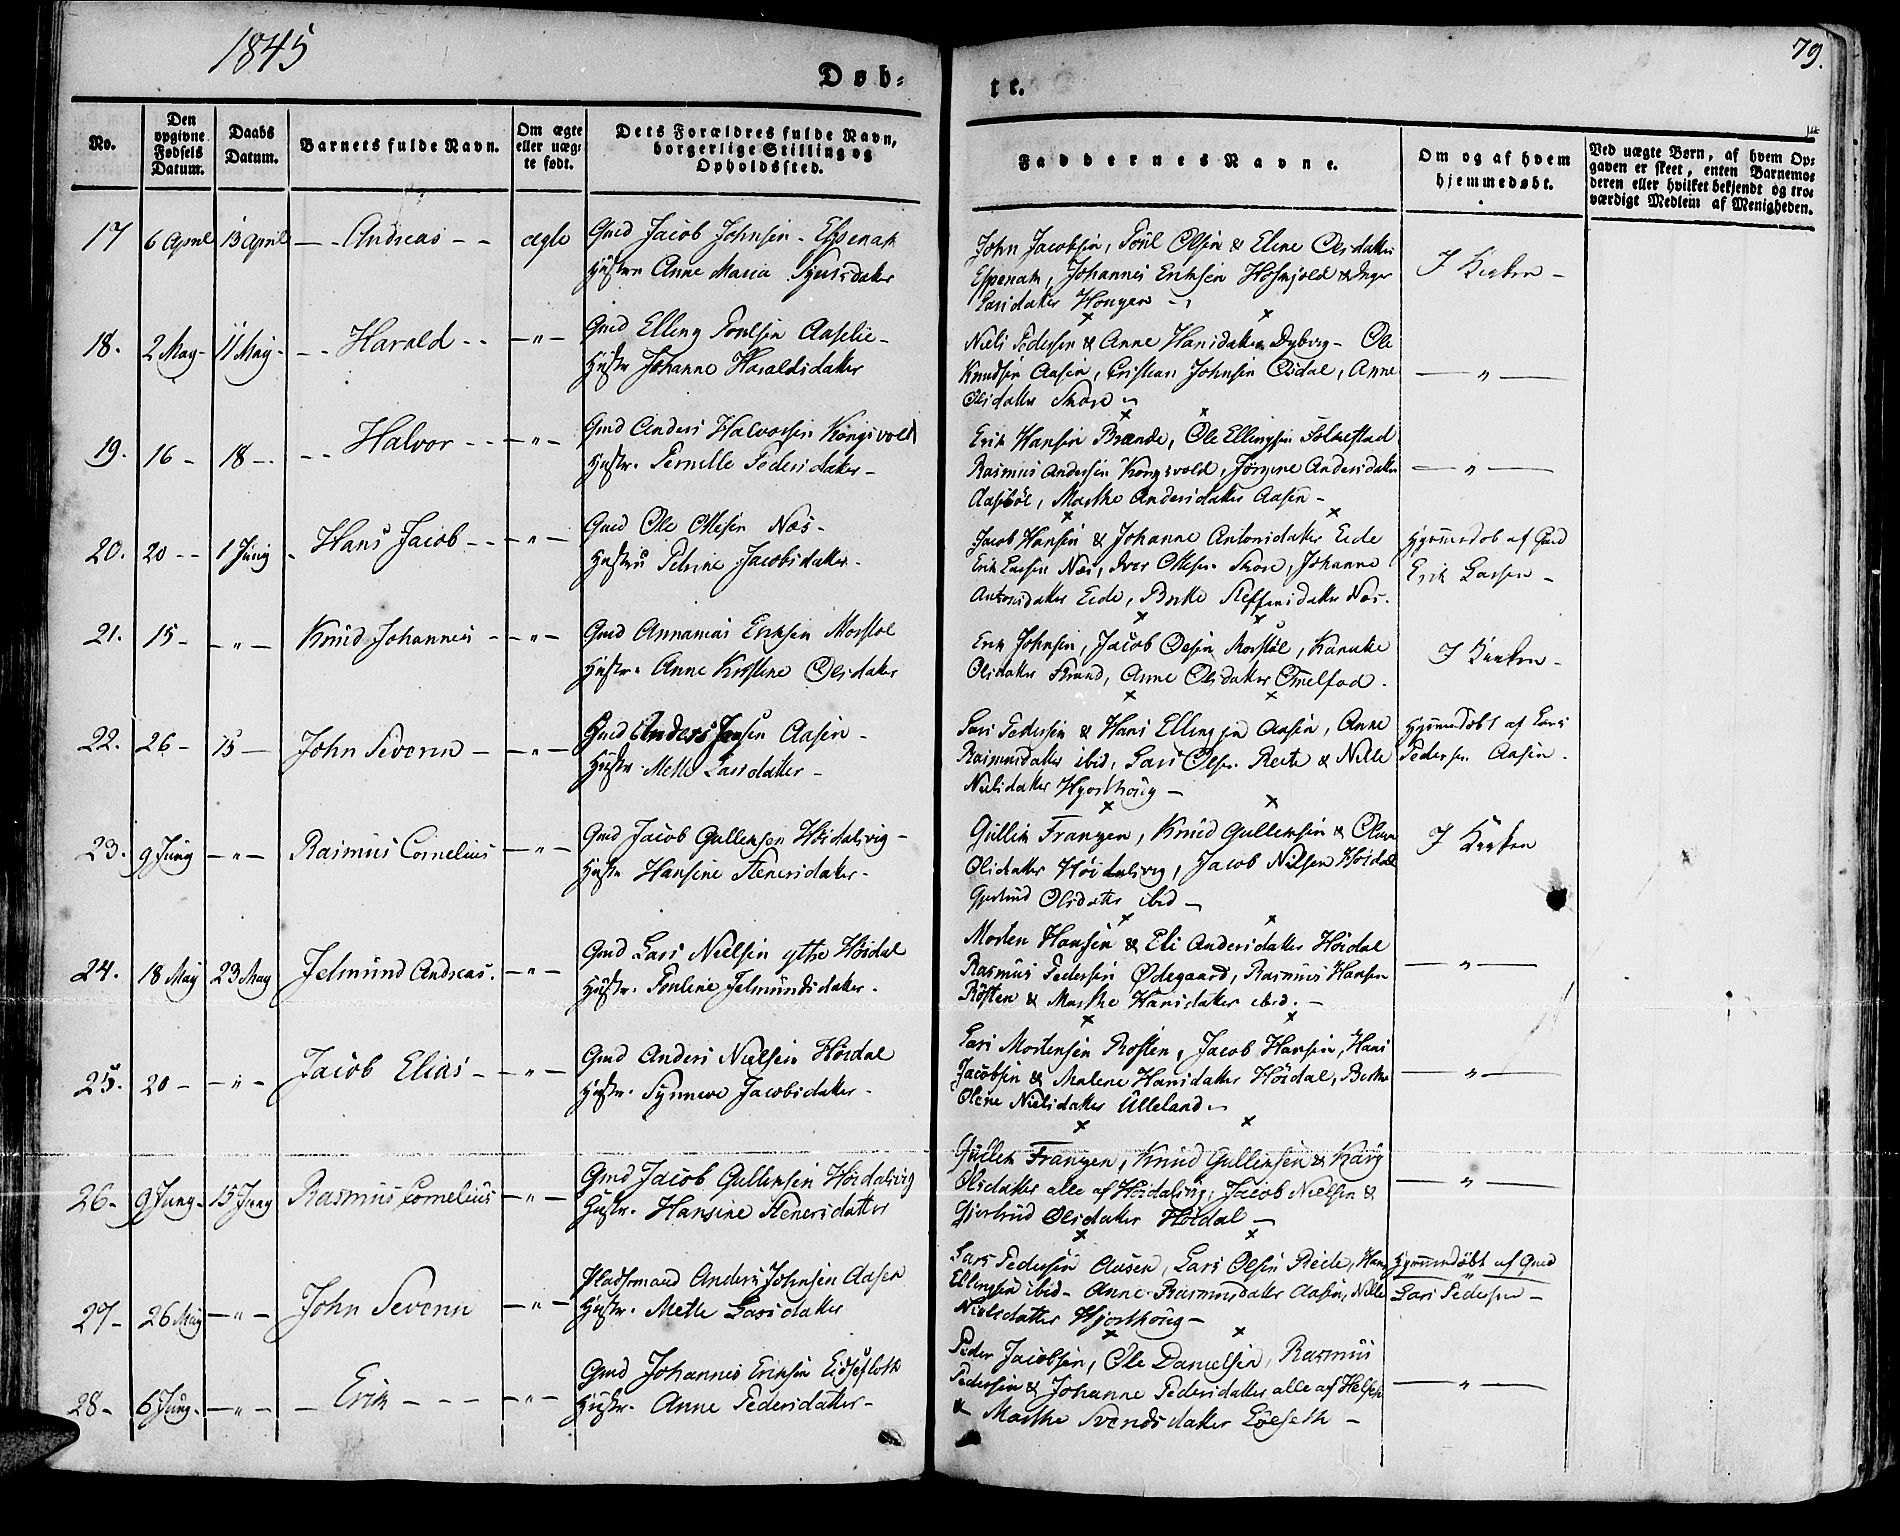 1845
79.
Døb-
te.
No.
Den opgivne Fødsels Datum.
Daabs Datum.
Barnets fulde Navn.
Om ægte eller uægte født.
Dets Forældres fulde Navn, borgerlige Stilling og Opholdssted.
Faddernes Navne.
Om og af hvem hjemmedøbt.
Ved uægte Børn, af hvem Opgaven er skeet, enten Barnemoderen eller hvilket bekjendt og troværdigt Medlem af Menigheden.
17 6 April 13 April Andreas ægte
Gmd Jacob Johnsen Espenak
Hustru Anne Maria
John Jacobsen, Poul Olsen & Eline Olsdatter
Espenak, Johannes Eriksen & Inger
Larsdatter Hougen
I Kirken
18. 2 May 11 May Harald — " —
Gmd Elling Poulsen Aaselie
Hustr Johanne Haraldsdatter
Niels Pedersen & Anne Hansdatter Dybvig Ole
Knudsen Aasen, Cristian Johnsen Osdal, Anne
Olsdatter Skare
— " —
19. 16 18 Halvor — " —
Gmd Anders Halvorsen Kongsvold
Hustr. Pernille Pedersdatter
Erik Hansen Brænde, Ole Ellingsen Folkestad
Rasmus Andersen Kongsvold, Jørgine Andersdatter
Marthe Andersdatter Aasen
— " —
20. 20 1 Juny Hans Jacob — " —
Gmd Ole Ottesen Næs
Hustru Petrine Jacobsdatter
Jacob Hansen & Johanne Antonsdatter Eide
Erik Larsen Næs, Iver Ottesen Skare, Johanne
Antonsdatter Eide, Berthe Steffensdatter Næs.
Hjemmedøb af Gmd
Erik Larsen
21. 15 — " — Knud Johannes — " —
Gmd Annanias Eriksen Morstøl
Hustr. Anne Kristine Olsdatter
Erik Johnsen, Jacob Olsen Morstøl,
Olsdatter Strand, Anne Olsdatter
I Kirken
22. 26 15 John Severin — " —
Gmd Anders Jensen Aasen
Hustr. Mette Larsdatter
Lars Pedersen & Hans Ellingsen Aasen, Anne
Rasmusdatter ibid, Lars Olsen Reite & Nille
Nielsdatter Hjorthoug
Hjemmedøbt af Lars
Pedersen Aasen.
23. 9 Juny — " — Rasmus Cornelius — " —
Gmd Jacob Gulleksen Høidalsvig
Hustr Hansine Stenersdatter
Gullik Frangen, Knud Gulleksen &
Olsdatter Høidalsvig, Jacob Nilsen Høidal
Gjertrud Olsdatter ibid
I Kirken
24. 18 May 23 May Jetmund Andreas. — " —
Gmd Lars Nielsen ytre Høidal
Hustr. Pouline Jetmundsdatter.
Morten Hansen & Eli Andersdatter Høidal
Rasmus Pedersen Ødegaard, Rasmus Hansen
Røsten & Marthe Hansdatter ibid.
— " —
25. 20 — " — Jacob Elias — " —
Gmd Anders Nielsen Høidal
Hustr. Synneve Jacobsdatter
Lars Mortensen Rosten, Jacob Hansen, Hans
Jacobsen & Malene Hansdatter Høidal, Berthe
Oline Nielsdatter Ulleland
— " —
26 9 Juny 15 Juny Rasmus Cornelius — " —
Gmd Jacob Gulleksen Høidalsvig
Hustr. Hansine Stenersdatter
Gullek Frangen, Knud Gulliksen & Kary
Olsdatter alle af Høidalsvig, Jacob Nielsen &
Gjertrud Olsdatter Høidal
— " —
27 26 May — " — John Severin — " —
Pladsmand Anders Johnsen Aasen
Hustr. Mette Larsdatter
Lars Pedersen Aasen, Lars Olsen Reite, Hans
Ellingsen ibid Anne Rasmusdatter Aasen, Nille
Nielsdatter Hjorthoug
Hjemmedøbt af Gmd
Lars Pedersen
28 6 Juny — " — Erik — " —
Gmd Johannes Eriksen Eidseflott
Hustr. Anne Pedersdatter
Peder Jacobsen, Ole Danielsen, Rasmus
Pedersen & Johanne Pedersdatter alle af
& Marthe Svendsdatter Løvseth
— " —